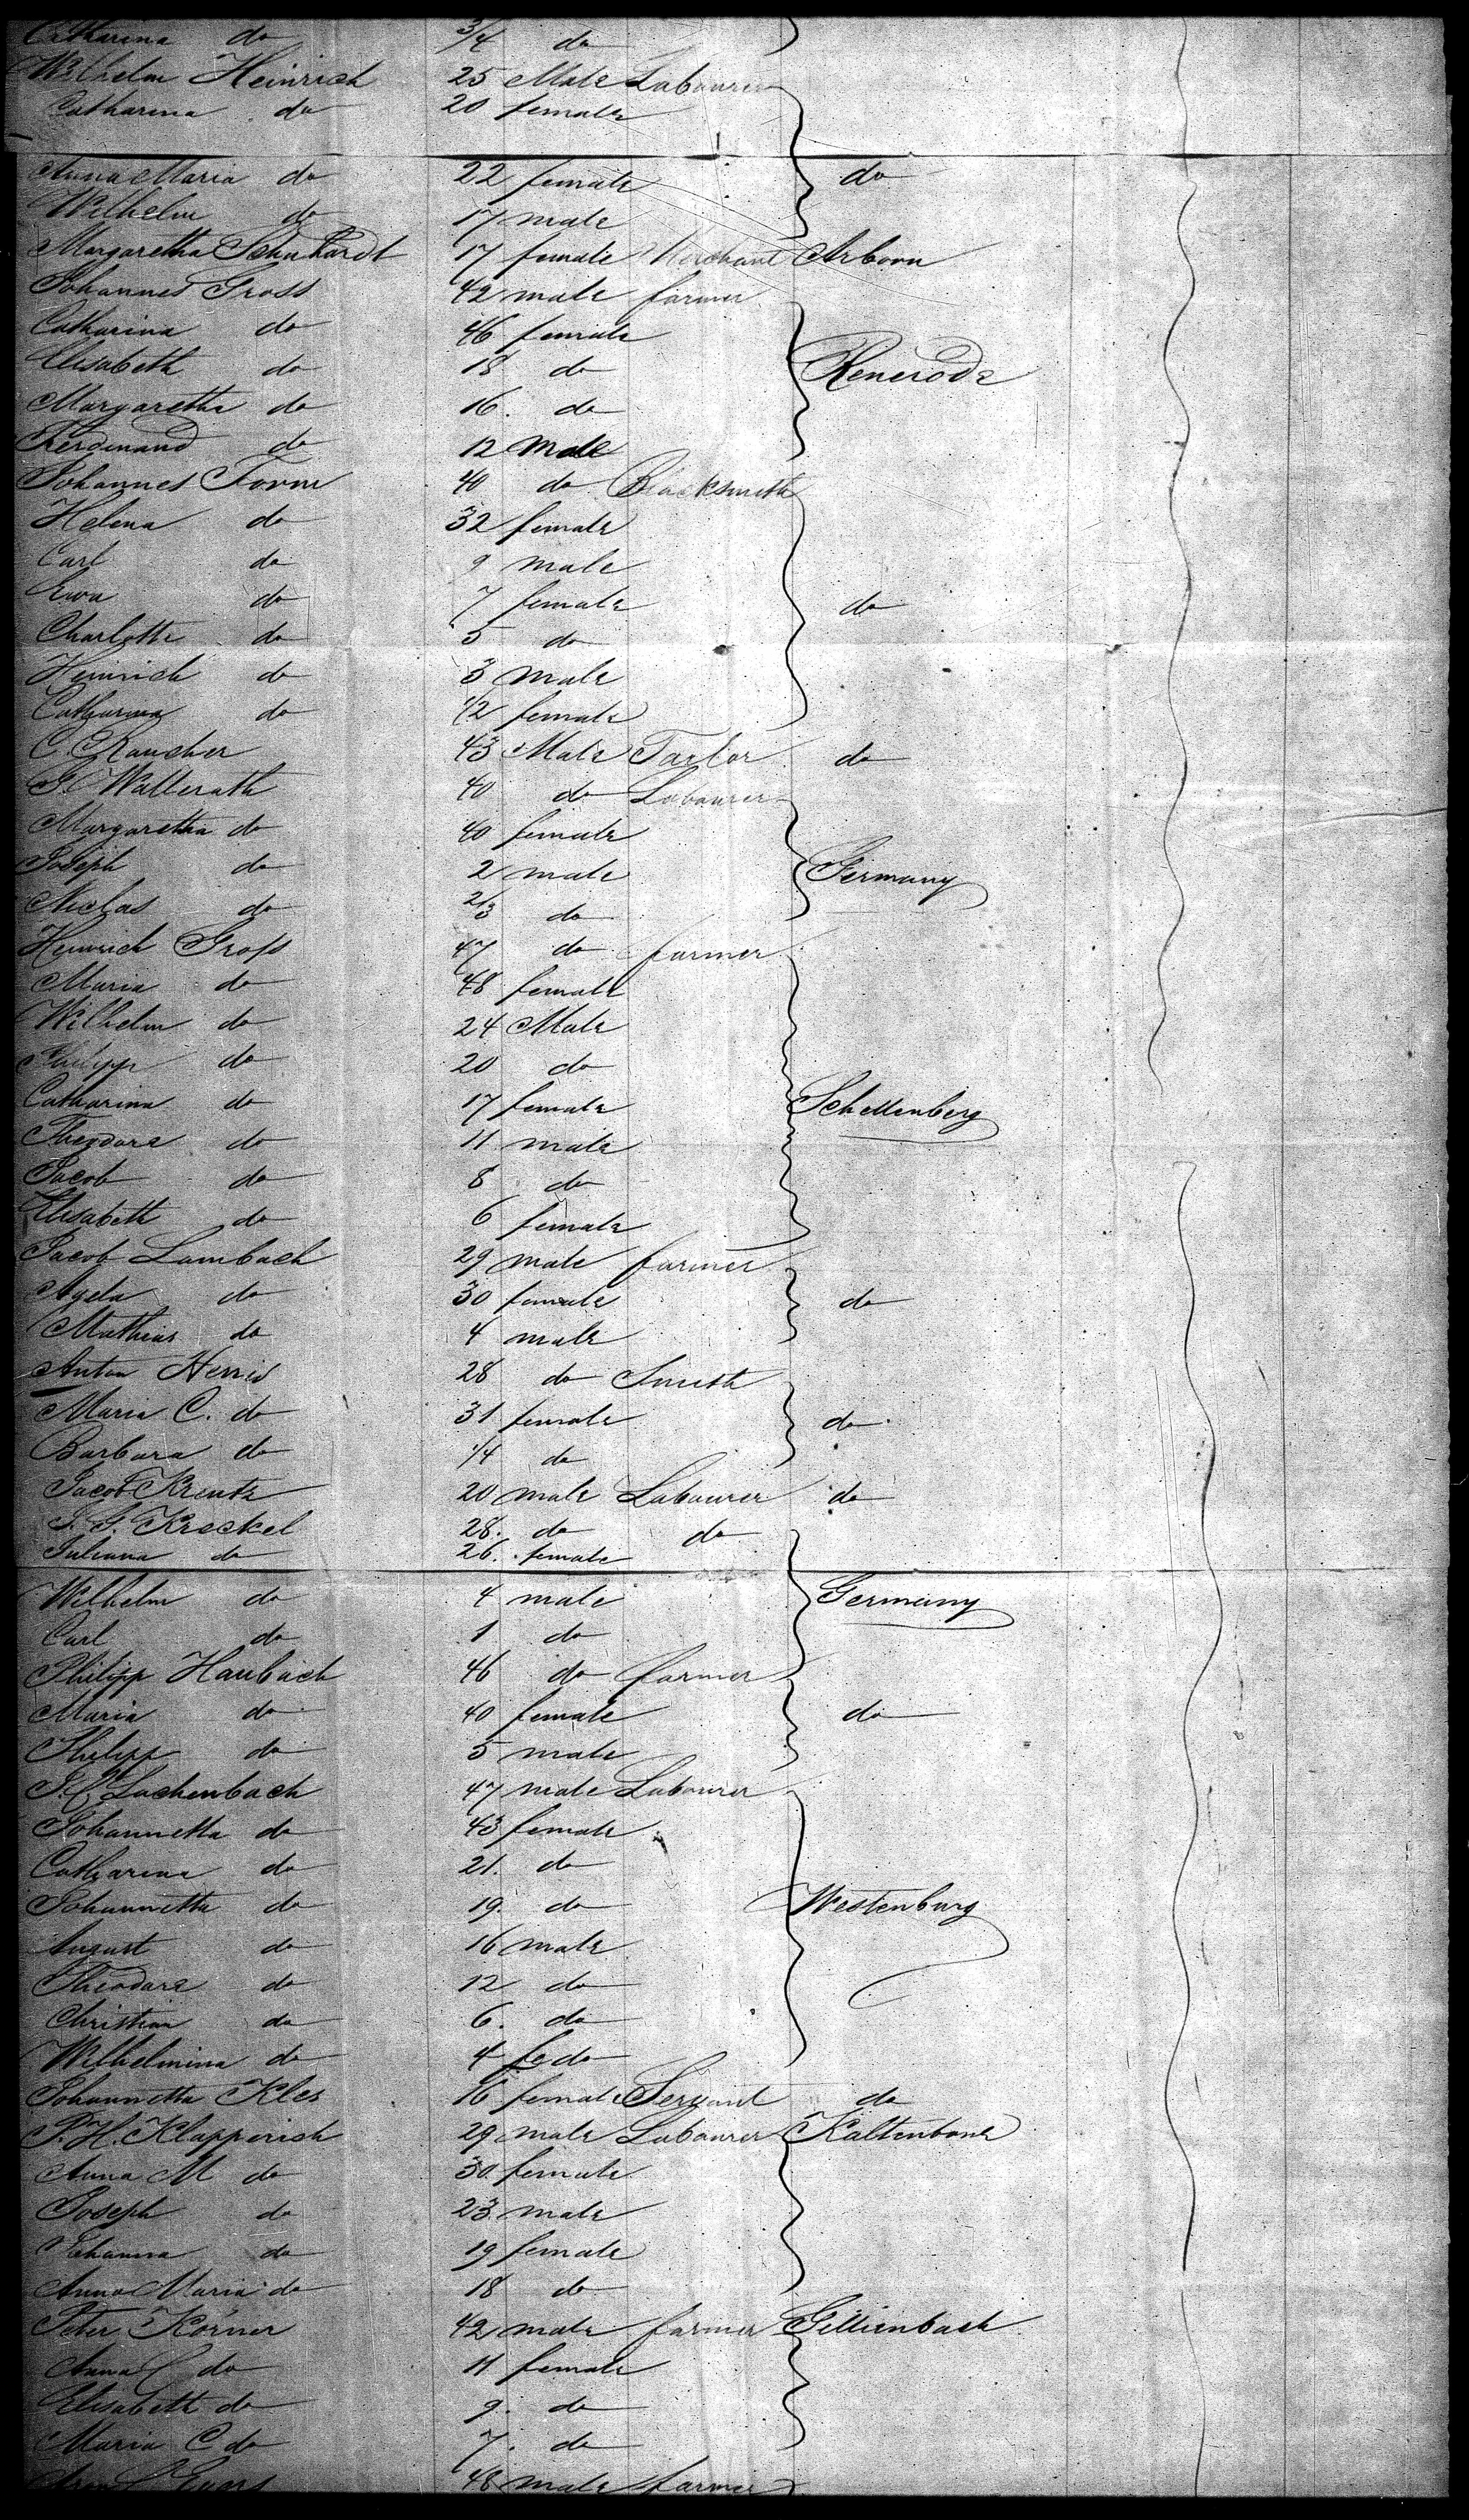 Catharina do 3/4 do
Wilhelm Heinrich 25 Male Labourer
Catharina do 20 female
Anna Maria do 22 female do
Wilhelm do 17 male
Margaretha Schuhardt 17 female Merchant Arborn
Johannes Gross 42 male farmer
Catharina do 46 female
Elisabeth do 18 do Renerode
Margaretha do 16. do
Ferdinand do 12 male
Johannes Form 40 do Blacksmith
Helena do 32 female
Carl do 9 male
Ewa do 7 female do
Charlotte do 5 do
Heinrich do 3 male
Catharina do 1/2 female
C. Rauscher 43 Male Taylor do
G. Wallerath 40 do Labourer
Margaretha do 40 female
Joseph do 2 male Germany
Niclas do 2/3 do
Heinrich Gross 47 do farmer
Maria do 48 female
Wilhelm do 24 Male
Philipp do 20 do
Catharina do 17 female Schellenberg
Theodore do 11 male
Jacob do 8 do
Elisabeth do 6 female
Jacob Lambach 29 male farmer
Agela do 30 female do
Mathias do 4 male
Anton 28 do Smith
Maria C. do 31 female do
Barbara do 1/4 do
Jacob Kreutz 20 male Labourer do
Kreckel 28. do do
Juliana do 26. female
Wilhelm do 4 male Germany
Carl do 1 do
Philipp Haubach 46 do farmer
Maria do 40 female do
Philipp do 5 male
J. C. Lachenbach 47 male Labourer
Johannetta do 43 female
Catharina do 21. do
Johannetta do 19. do Westenburg
August do 16 male
Theodore do 12 do
Christian do 6. do
Wilhelmina do 4 fe do
Johannetta Kles 16 female Servant do
P. H. Klapperich 29 male Labourer Kaltenborn
Anna M do 30. female
Joseph do 23 male
Johanna do 19 female
Anna Maria do 18 do
Peter Körner 42 male farmer Gillienbach
Anna C do 11 female
Elisabeth do 9. do
Maria C do 7. do
48 male farmer